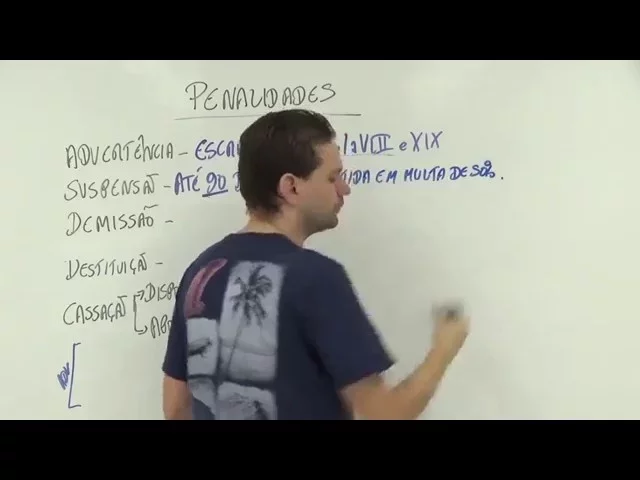 PENALIDADES
ADVERTÊNCIA - ESCR I a VIII e XIX
SUSPENSÃO - ATÉ 90 D TIDA EM MULTA DE 50%.
DEMISSÃO -
DESTITUIÇÃO -
CASSAÇÃO DISPO
APO